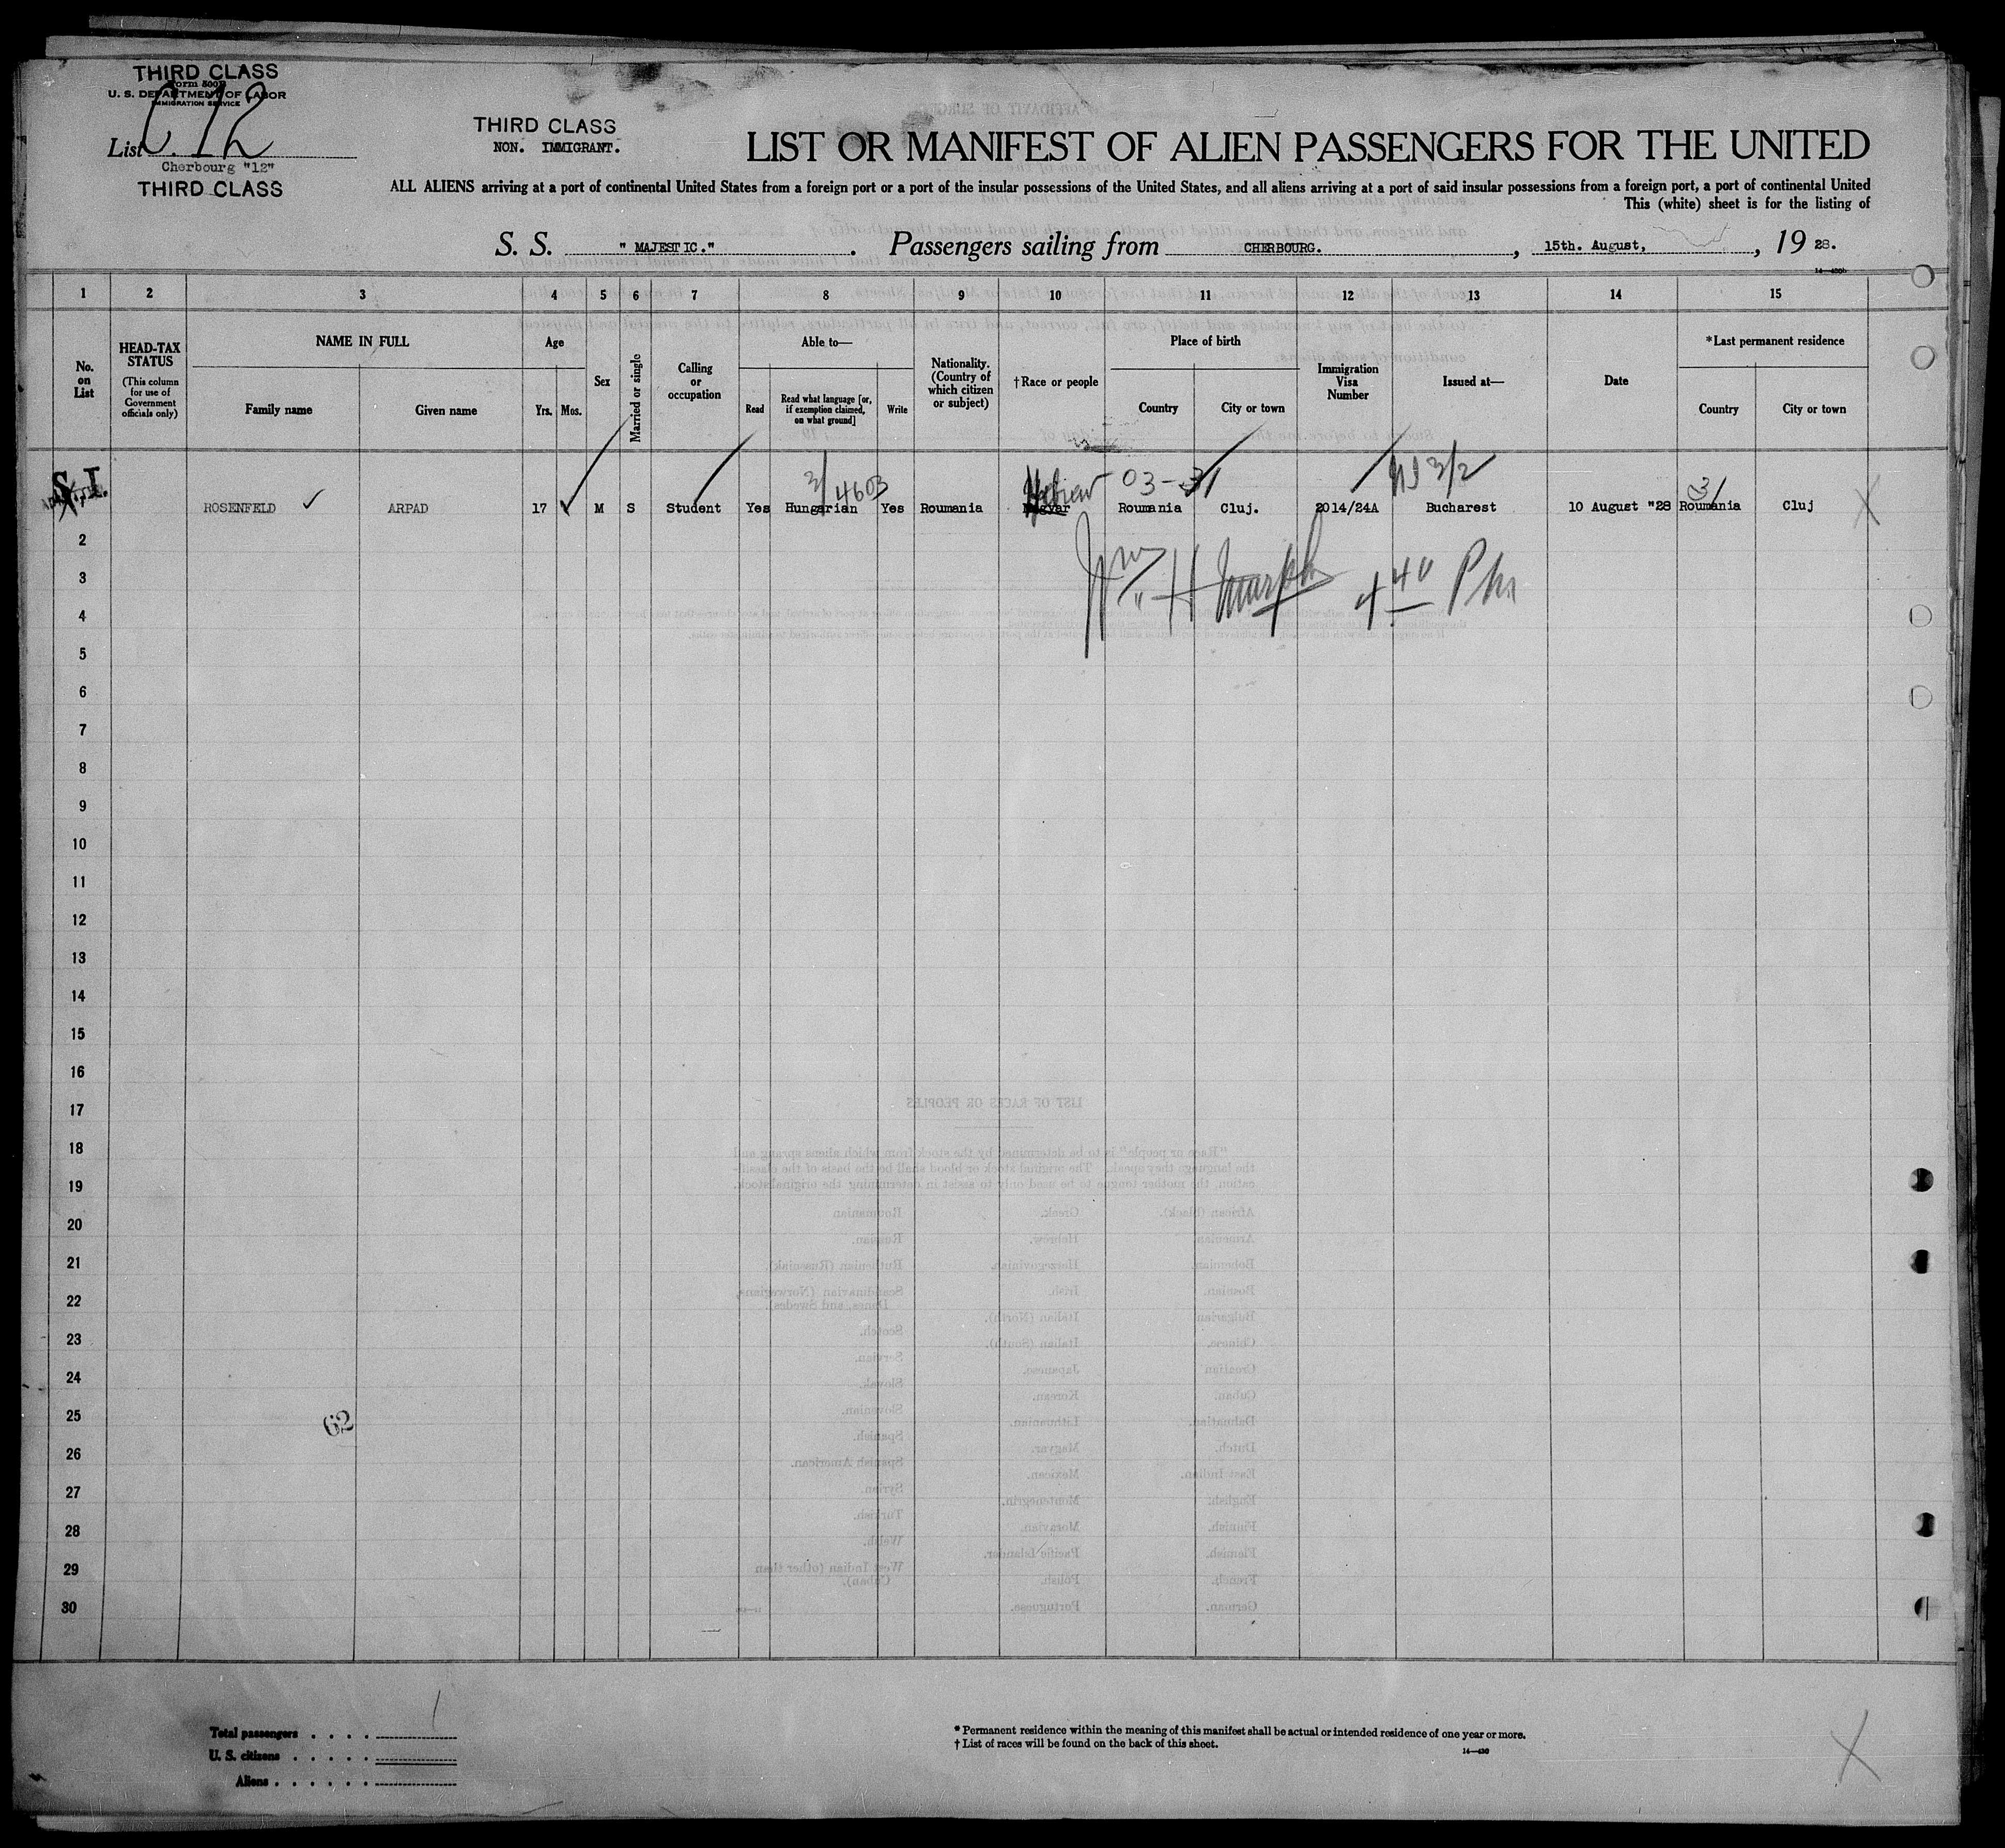 THIRD CLASS
Form 500
U. S. DEPARTMENT OF LABOR
IMMIGRATION SERVICE
List C. 12
Cherbourg "12"
THIRD CLASS
THIRD CLASS
NON. IMMIGRANT.
LIST OR MANIFEST OF ALIEN PASSENGERS FOR THE UNITED
ALL ALIENS arriving at a port of continental United States from a foreign port or a port of the insular possessions of the United States, and all aliens arriving at a port of said insular possessions from a foreign port, a port of continental United
This (white) sheet is for the listing of
S. S. " MAJESTIC." . Passengers sailing from CHERBOURG. , 15th. August, , 19 28.
1 2 3 4 5 6 7 8 9 10 11 12 13 14 15
No. on List
HEAD-TAX STATUS
(This column for use of Government officials only)
NAME IN FULL
Family name
Given name
Age
Yrs.
Mos.
Sex
Married or single
Calling or occupation
Able to—
Read
Read what language [or, if exemption claimed, on what ground]
Write
Nationality. (Country of which citizen or subject)
†Race or people
Place of birth
Country
City or town
Immigration Visa Number
Issued at—
Date
*Last permanent residence
Country
City or town
3/4603
Hebrew
03-31
NI 3/2
31
S.I. ROSENFELD ARPAD 17 M S Student Yes Hungarian Yes Roumania Magyar Roumania Cluj. 2014/24A Bucharest 10 August "28 Roumania Cluj X
Wm H Murph 4 40 PM
2
3
4
5
6
7
8
9
10
11
12
13
14
15
16
17
18
19
20
21
22
23
24
25
62
26
27
28
29
30
Total passengers . . . . 1
U. S. citizens . . . . .
Aliens . . . . . .
* Permanent residence within the meaning of this manifest shall be actual or intended residence of one year or more.
† List of races will be found on the back of this sheet.
14—430
X